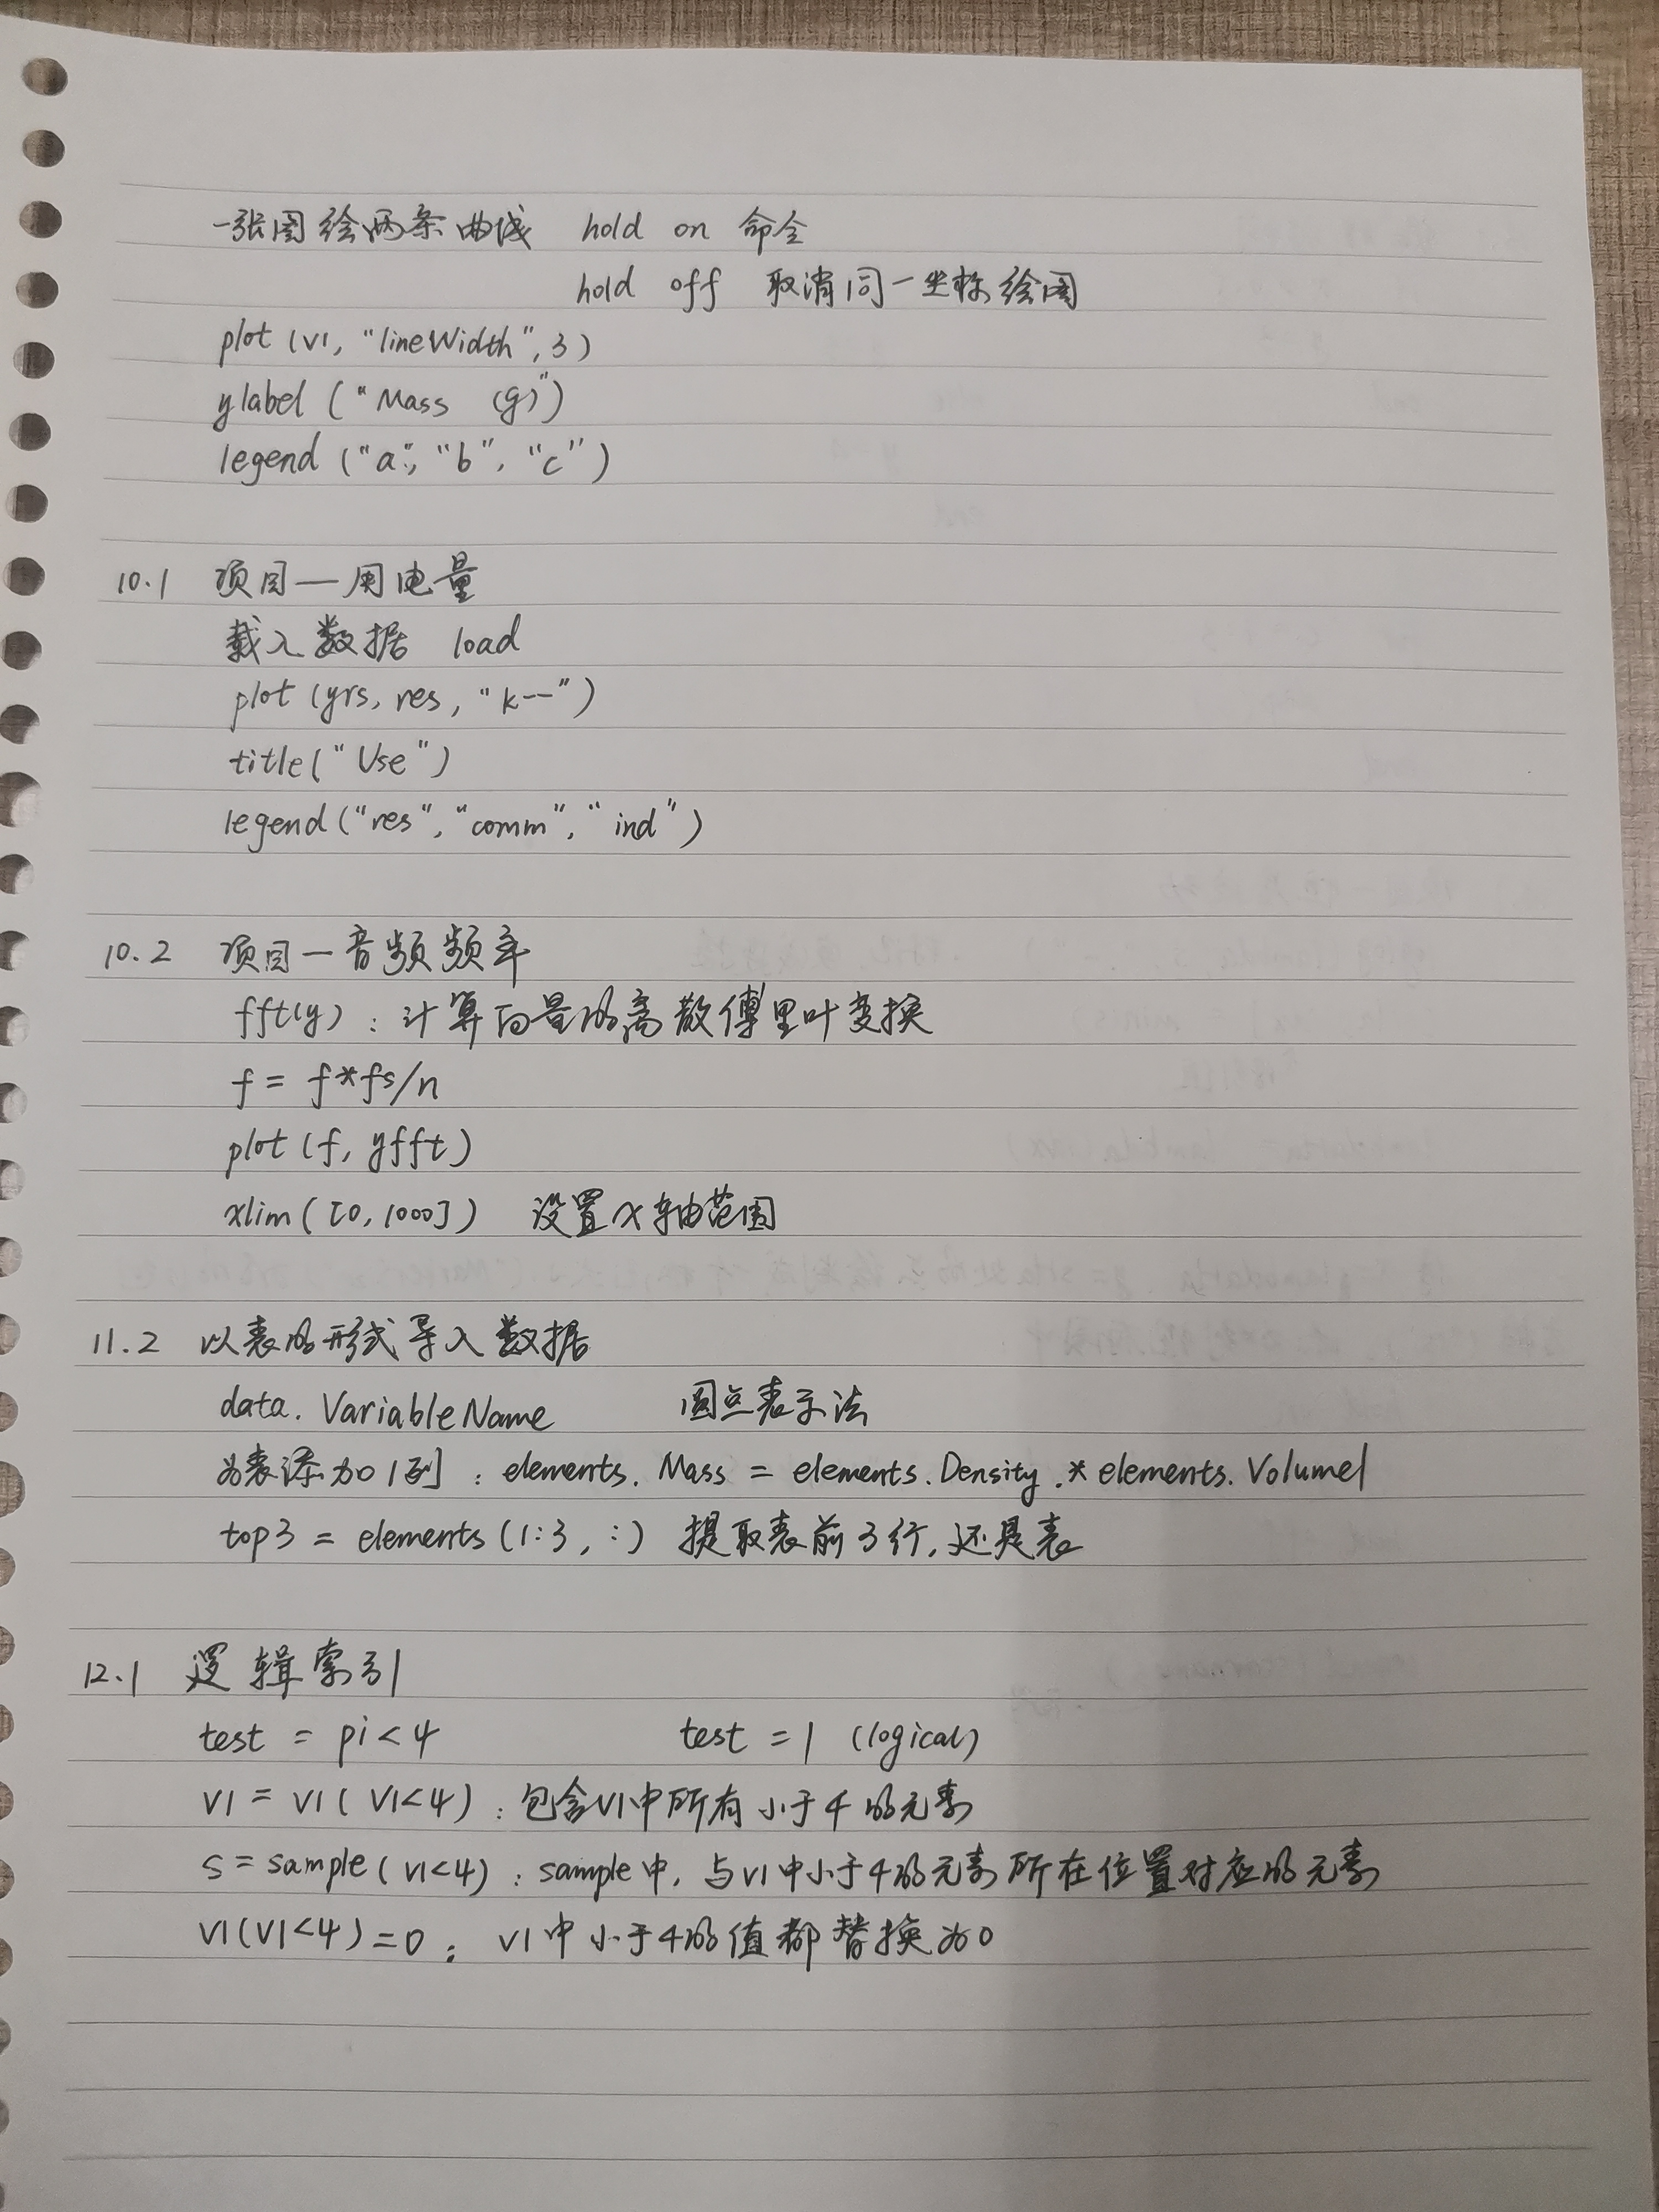 一张图绘两条曲线 hold on 命令
hold off 取消同一坐标绘图
plot (v1, "lineWidth", 3)
ylabel ("Mass (g)")
legend ("a", "b", "c")
10.1 项目—用电量
载入数据 load
plot (yrs, res, "k--")
title("Use")
legend("res", "comm", "ind")
10.2 项目—音频频率
fft(y) : 计算向量的离散傅里叶变换
f = f*fs/n
plot (f, yfft)
xlim ([0, 1000]) 设置x轴范围
11.2 以表的形式导入数据
data. VariableName 圆点表示法
为表添加1列 : elements. Mass = elements. Density .* elements. Volume1
top3 = elements (1:3, :) 提取表前3行, 还是表
12.1 逻辑索引
test = pi < 4 test = 1 (logical)
v1 = v1 ( v1<4) : 包含v1中所有小于4的元素
s = sample ( v1<4) : sample中, 与v1中小于4的元素所在位置对应的元素
v1(v1<4) = 0 : v1中小于4的值都替换为0